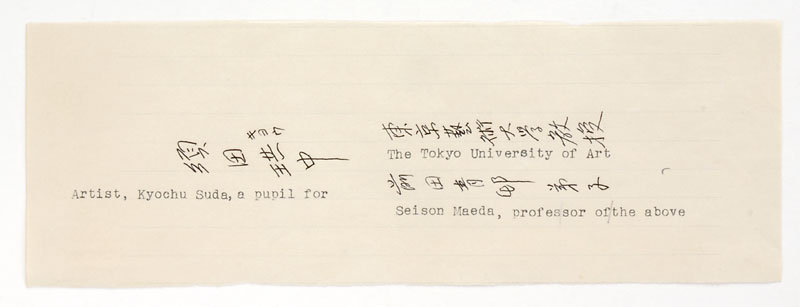 キョウ
須田珙中
Artist, Kyochu Suda, a pupil for
東京藝術大学教授
The Tokyo University of Art
前田青邨 弟子
Seison Maeda, professor of the above